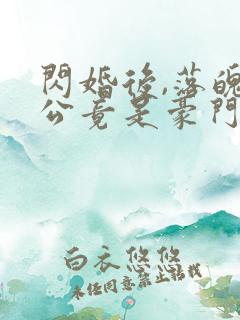 閃婚後,落魄
公竟是豪門
白衣悠悠
未经同意禁止转载